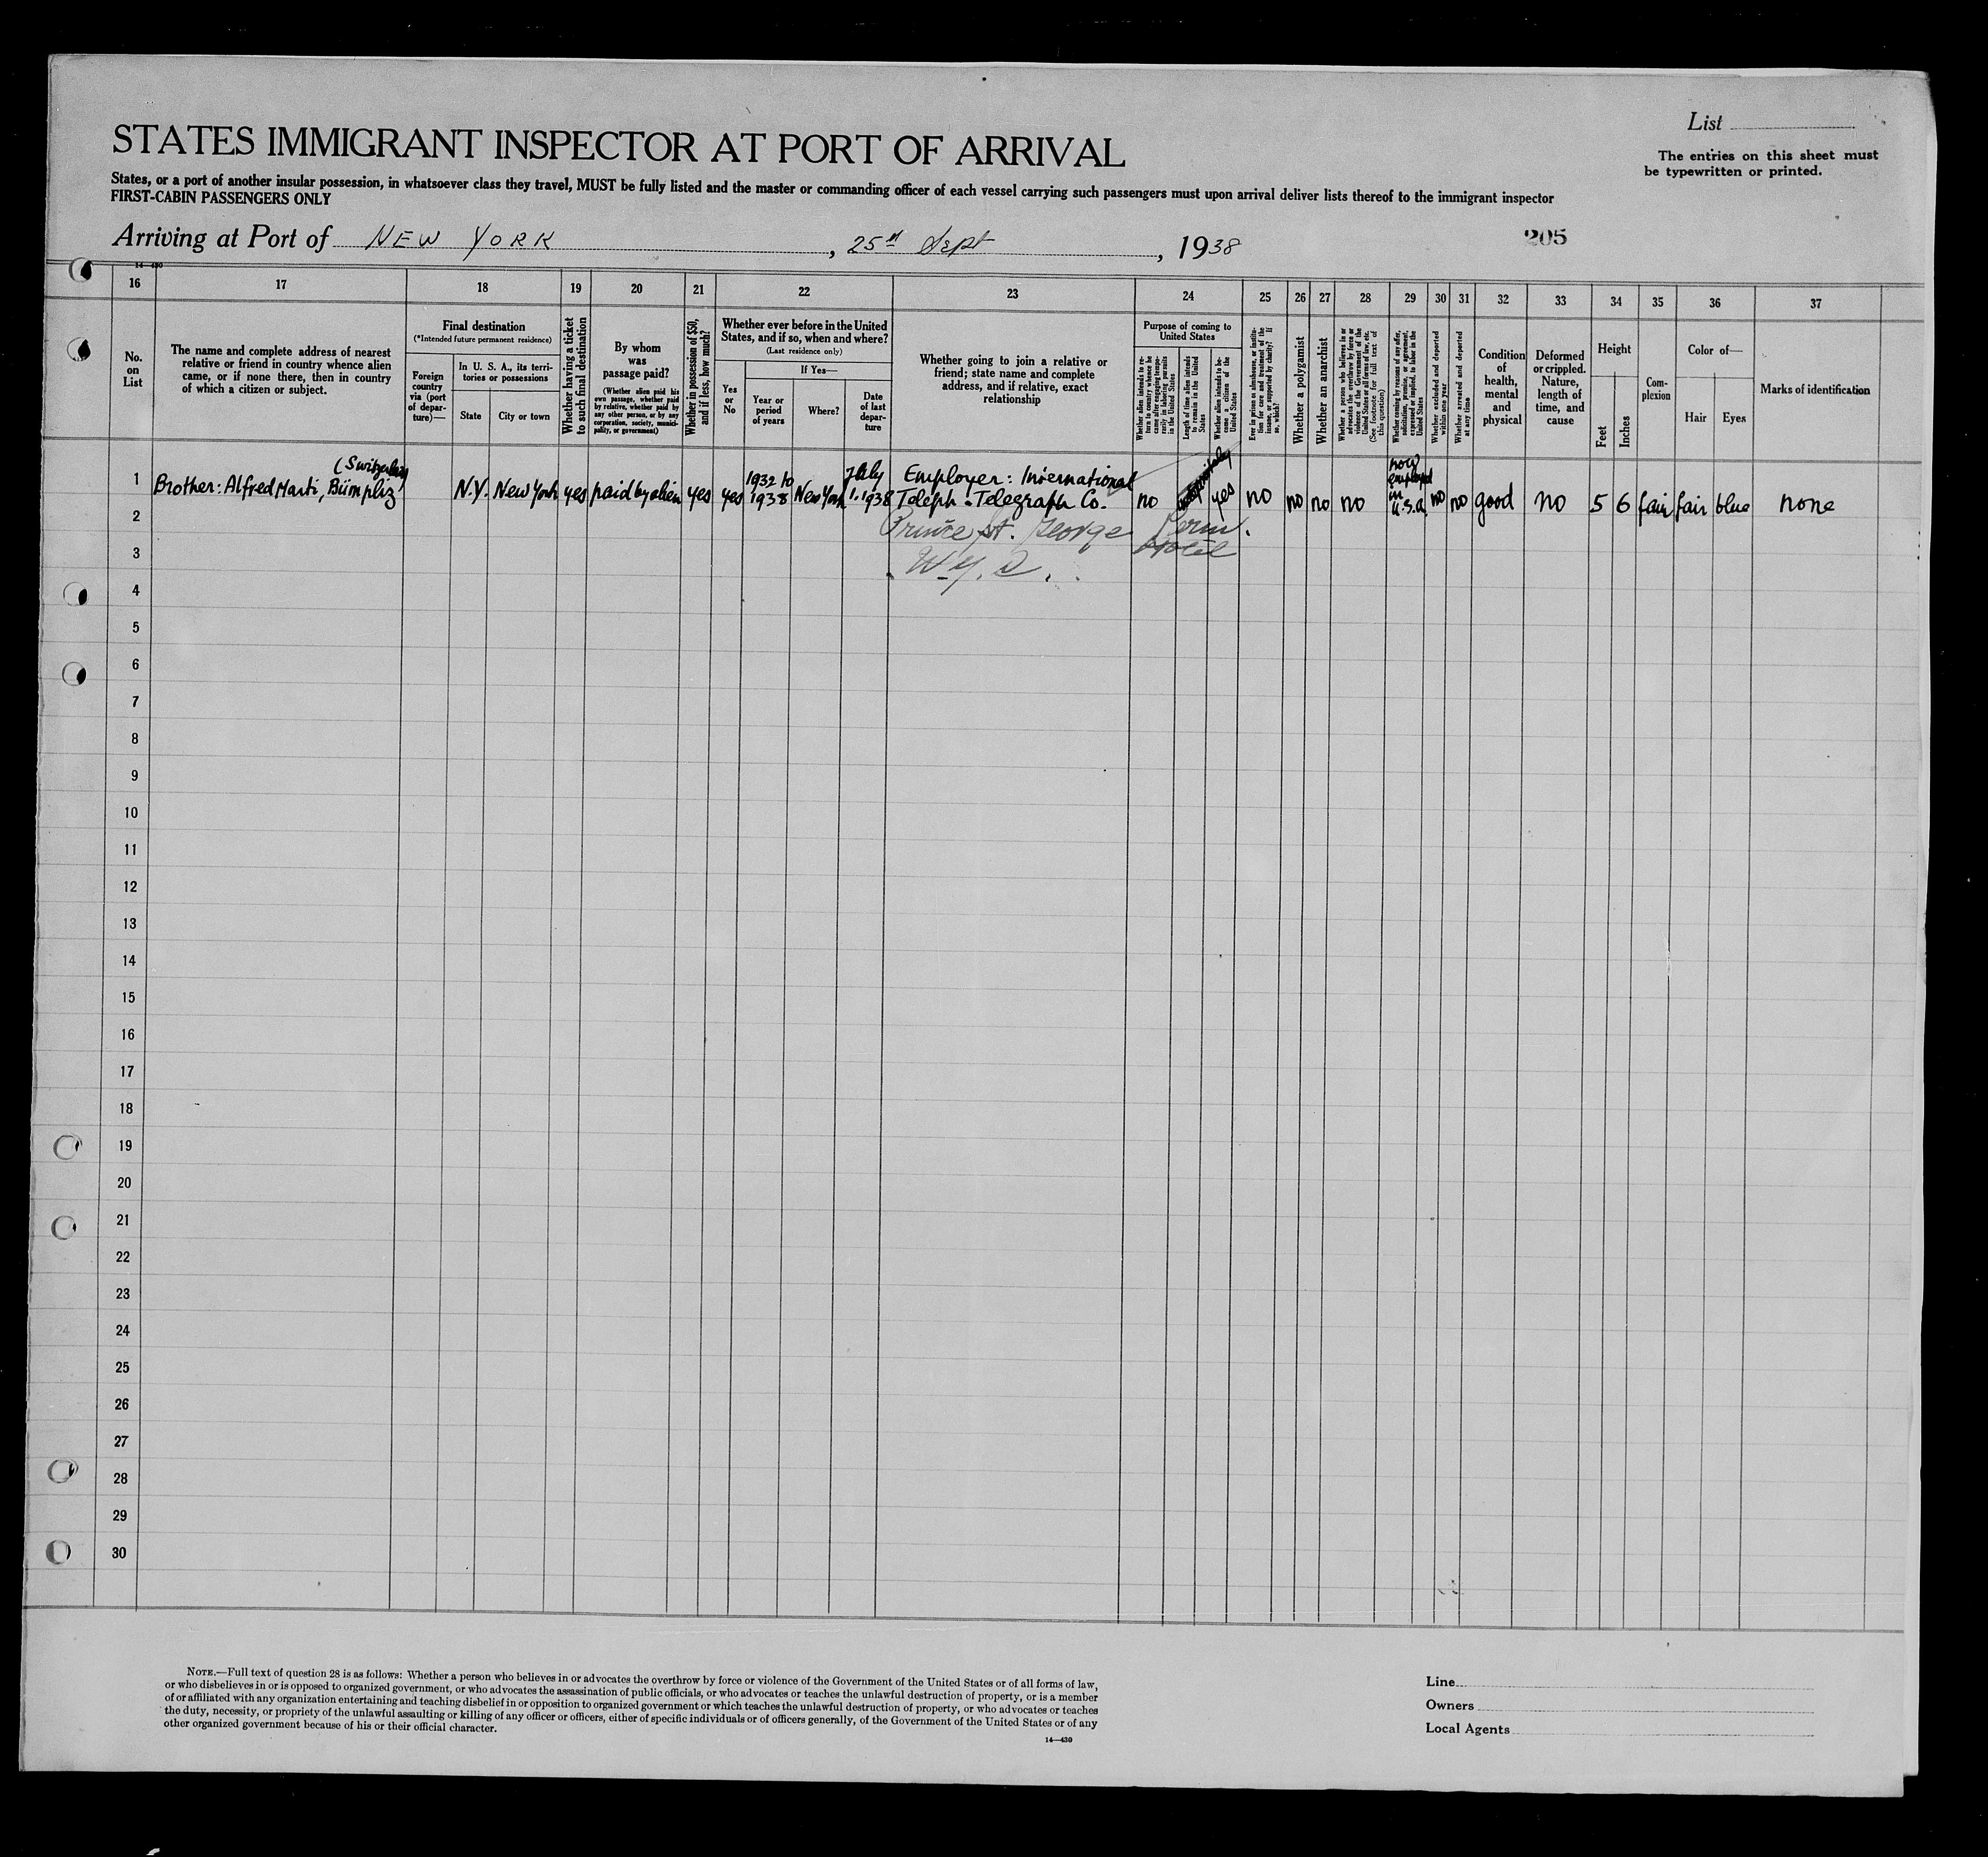 List
The entries on this sheet must
be typewritten or printed.
STATES IMMIGRANT INSPECTOR AT PORT OF ARRIVAL
States, or a port of another insular possession, in whatsoever class they travel, MUST be fully listed and the master or commanding officer of each vessel carrying such passengers must upon arrival deliver lists thereof to the immigrant inspector
FIRST-CABIN PASSENGERS ONLY
Arriving at Port of NEW YORK, 25th Sept, 1938
205
14-430
16 17 18 19 20 21 22 23 24 25 26 27 28 29 30 31 32 33 34 35 36 37
No. on List
The name and complete address of nearest
relative or friend in country whence alien
came, or if none there, then in country
of which a citizen or subject.
Final destination
(*Intended future permanent residence)
Foreign
country
via (port
of depar-
ture)—
In U. S. A., its terri-
tories or possessions
State
City or town
Whether having a ticket
to such final destination
By whom
was
passage paid?
(Whether alien paid his
own passage, whether paid
by relative, whether paid by
any other person, or by any
corporation, society, munici-
pality, or government)
Whether in possession of $50,
and if less, how much?
Whether ever before in the United
States, and if so, when and where?
(Last residence only)
Yes
or
No
If Yes—
Year or
period
of years
Where?
Date
of last
depar-
ture
Whether going to join a relative or
friend; state name and complete
address, and if relative, exact
relationship
Purpose of coming to
United States
Whether alien intends to re-
turn to country whence he
came after engaging tempo-
rarily in laboring pursuits
in the United States
Length of time alien intends
to remain in the United
States
Whether alien intends to be-
come a citizen of the
United States
Ever in prison or almshouse, or institu-
tion for care and treatment of the
insane, or supported by charity? If
so, which?
Whether a polygamist
Whether an anarchist
Whether a person who believes in or
advocates the overthrow by force or
violence of the Government of the
United States or all forms of law, etc.
(See footnote for full text of
this question)
Whether coming by reasons of any offer,
solicitation, promise, or agreement,
expressed or implied, to labor in the
United States
Whether excluded and deported
within one year
Whether arrested and deported
at any time
Condition
of
health,
mental
and
physical
Deformed
or crippled.
Nature,
length of
time, and
cause
Height
Feet
Inches
Com-
plexion
Color of—
Hair
Eyes
Marks of identification
(Switzerland)
1 Brother: Alfred Marti, Bümpliz
N.Y. New York yes paid by alien yes yes
1932 to
1938
New York
July
1. 1938
Employer: International
Teleph. Telegraph Co.
no yes no no no no
now
employed
in
U.S.A.
no no good no 5 6 fair fair blue none
Prince St. George
Hotel
2
3
4
5
6
7
8
9
10
11
12
13
14
15
16
17
18
19
20
21
22
23
24
25
26
27
28
29
30
NOTE.—Full text of question 28 is as follows: Whether a person who believes in or advocates the overthrow by force or violence of the Government of the United States or of all forms of law,
or who disbelieves in or is opposed to organized government, or who advocates the assassination of public officials, or who advocates or teaches the unlawful destruction of property, or is a member
of or affiliated with any organization entertaining and teaching disbelief in or opposition to organized government or which teaches the unlawful destruction of property, or who advocates or teaches
the duty, necessity, or propriety of the unlawful assaulting or killing of any officer or officers, either of specific individuals or of officers generally, of the Government of the United States or of any
other organized government because of his or their official character.
14—430
Line
Owners
Local Agents